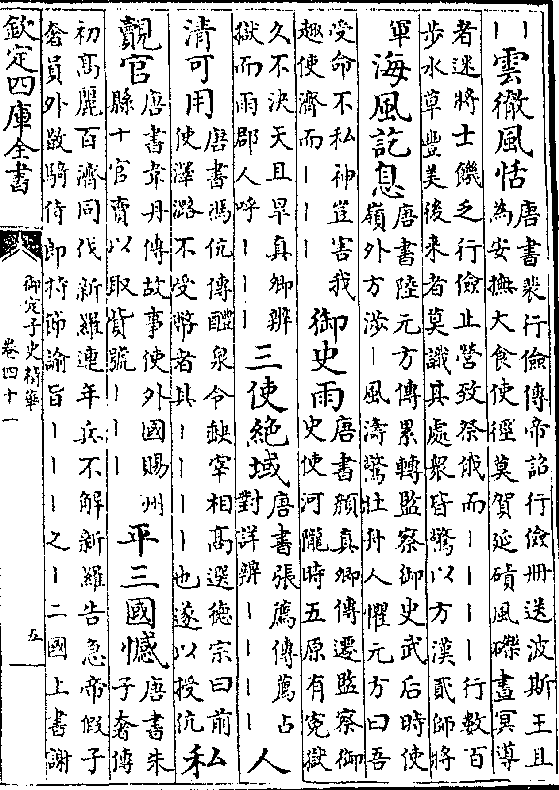 丨丨
雲徹風恬
唐書裴行儉傳帝詔行儉冊送波斯王且
為安撫大食使徑莫賀延磧風礫晝冥導
者迷將士饑乏行儉止營致祭俄而丨丨丨丨行數百
步水草豐美後来者莫識其處衆皆驚以方漢貳師將
軍
海風訖息
唐書陸元方傳累轉監察御史武后時使
嶺外方涉丨風濤驚壮舟人懼元方曰吾
受命不私神豈害我
趣使濟而丨丨丨
御史雨
唐書顔真卿傳遷監察御
史使河隴時五原有寃獄
久不決天且旱真卿辨
獄而雨郡人呼丨丨丨
三使絶域
唐書張薦傳薦占
對詳辨丨丨丨丨
人清可用
唐書馮伉傳醴泉令缺宰相髙選德宗曰前
使澤潞不受幣者其丨丨丨丨也遂以授伉
私覿官
唐書韋丹傳故事使外國賜州
縣十官賣以取貲號丨丨丨
平三國憾
唐書朱
子奢傳
初髙麗百濟同伐新羅連年兵不解新羅告急帝假子
奢員外散騎侍郎持節諭旨丨丨丨之丨二國上書謝
欽定四庫全書
御定子史精華
卷四十一
五